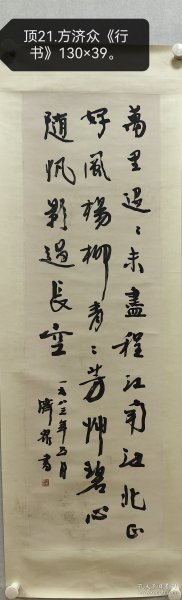 顶21.方济众《行
书》130×39。
萬里迢〻未盡程江南江北正
好風楊柳青〻芳艸碧心
随帆影過長空
一九八三年五月
濟衆書